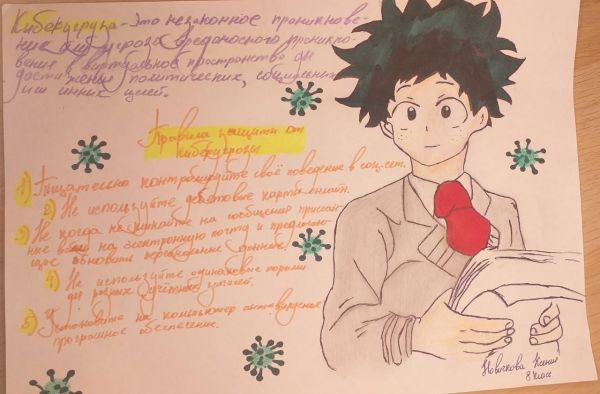 Киберугроза - это незаконное проникнове-
ние или угроза вредоносного проникно-
вения в виртуальное пространство для
достижения политических, социальных
или иных целей.
Правила защиты от
киберугрозы
1) Тщательно контролируйте своё поведение в соц. сет.
2) Не используйте дебетовые карты онлайн.
3) Не когда не на сообщения прислан-
ные вам на электронную почту и предлагаю-
щие обновить персональные данные
4) Не используйте одинаковые пароли
для разных учётных записей.
5) Установите на компьютер антивирусное
програмное обеспечение.
Новичкова Ксения
8 класс